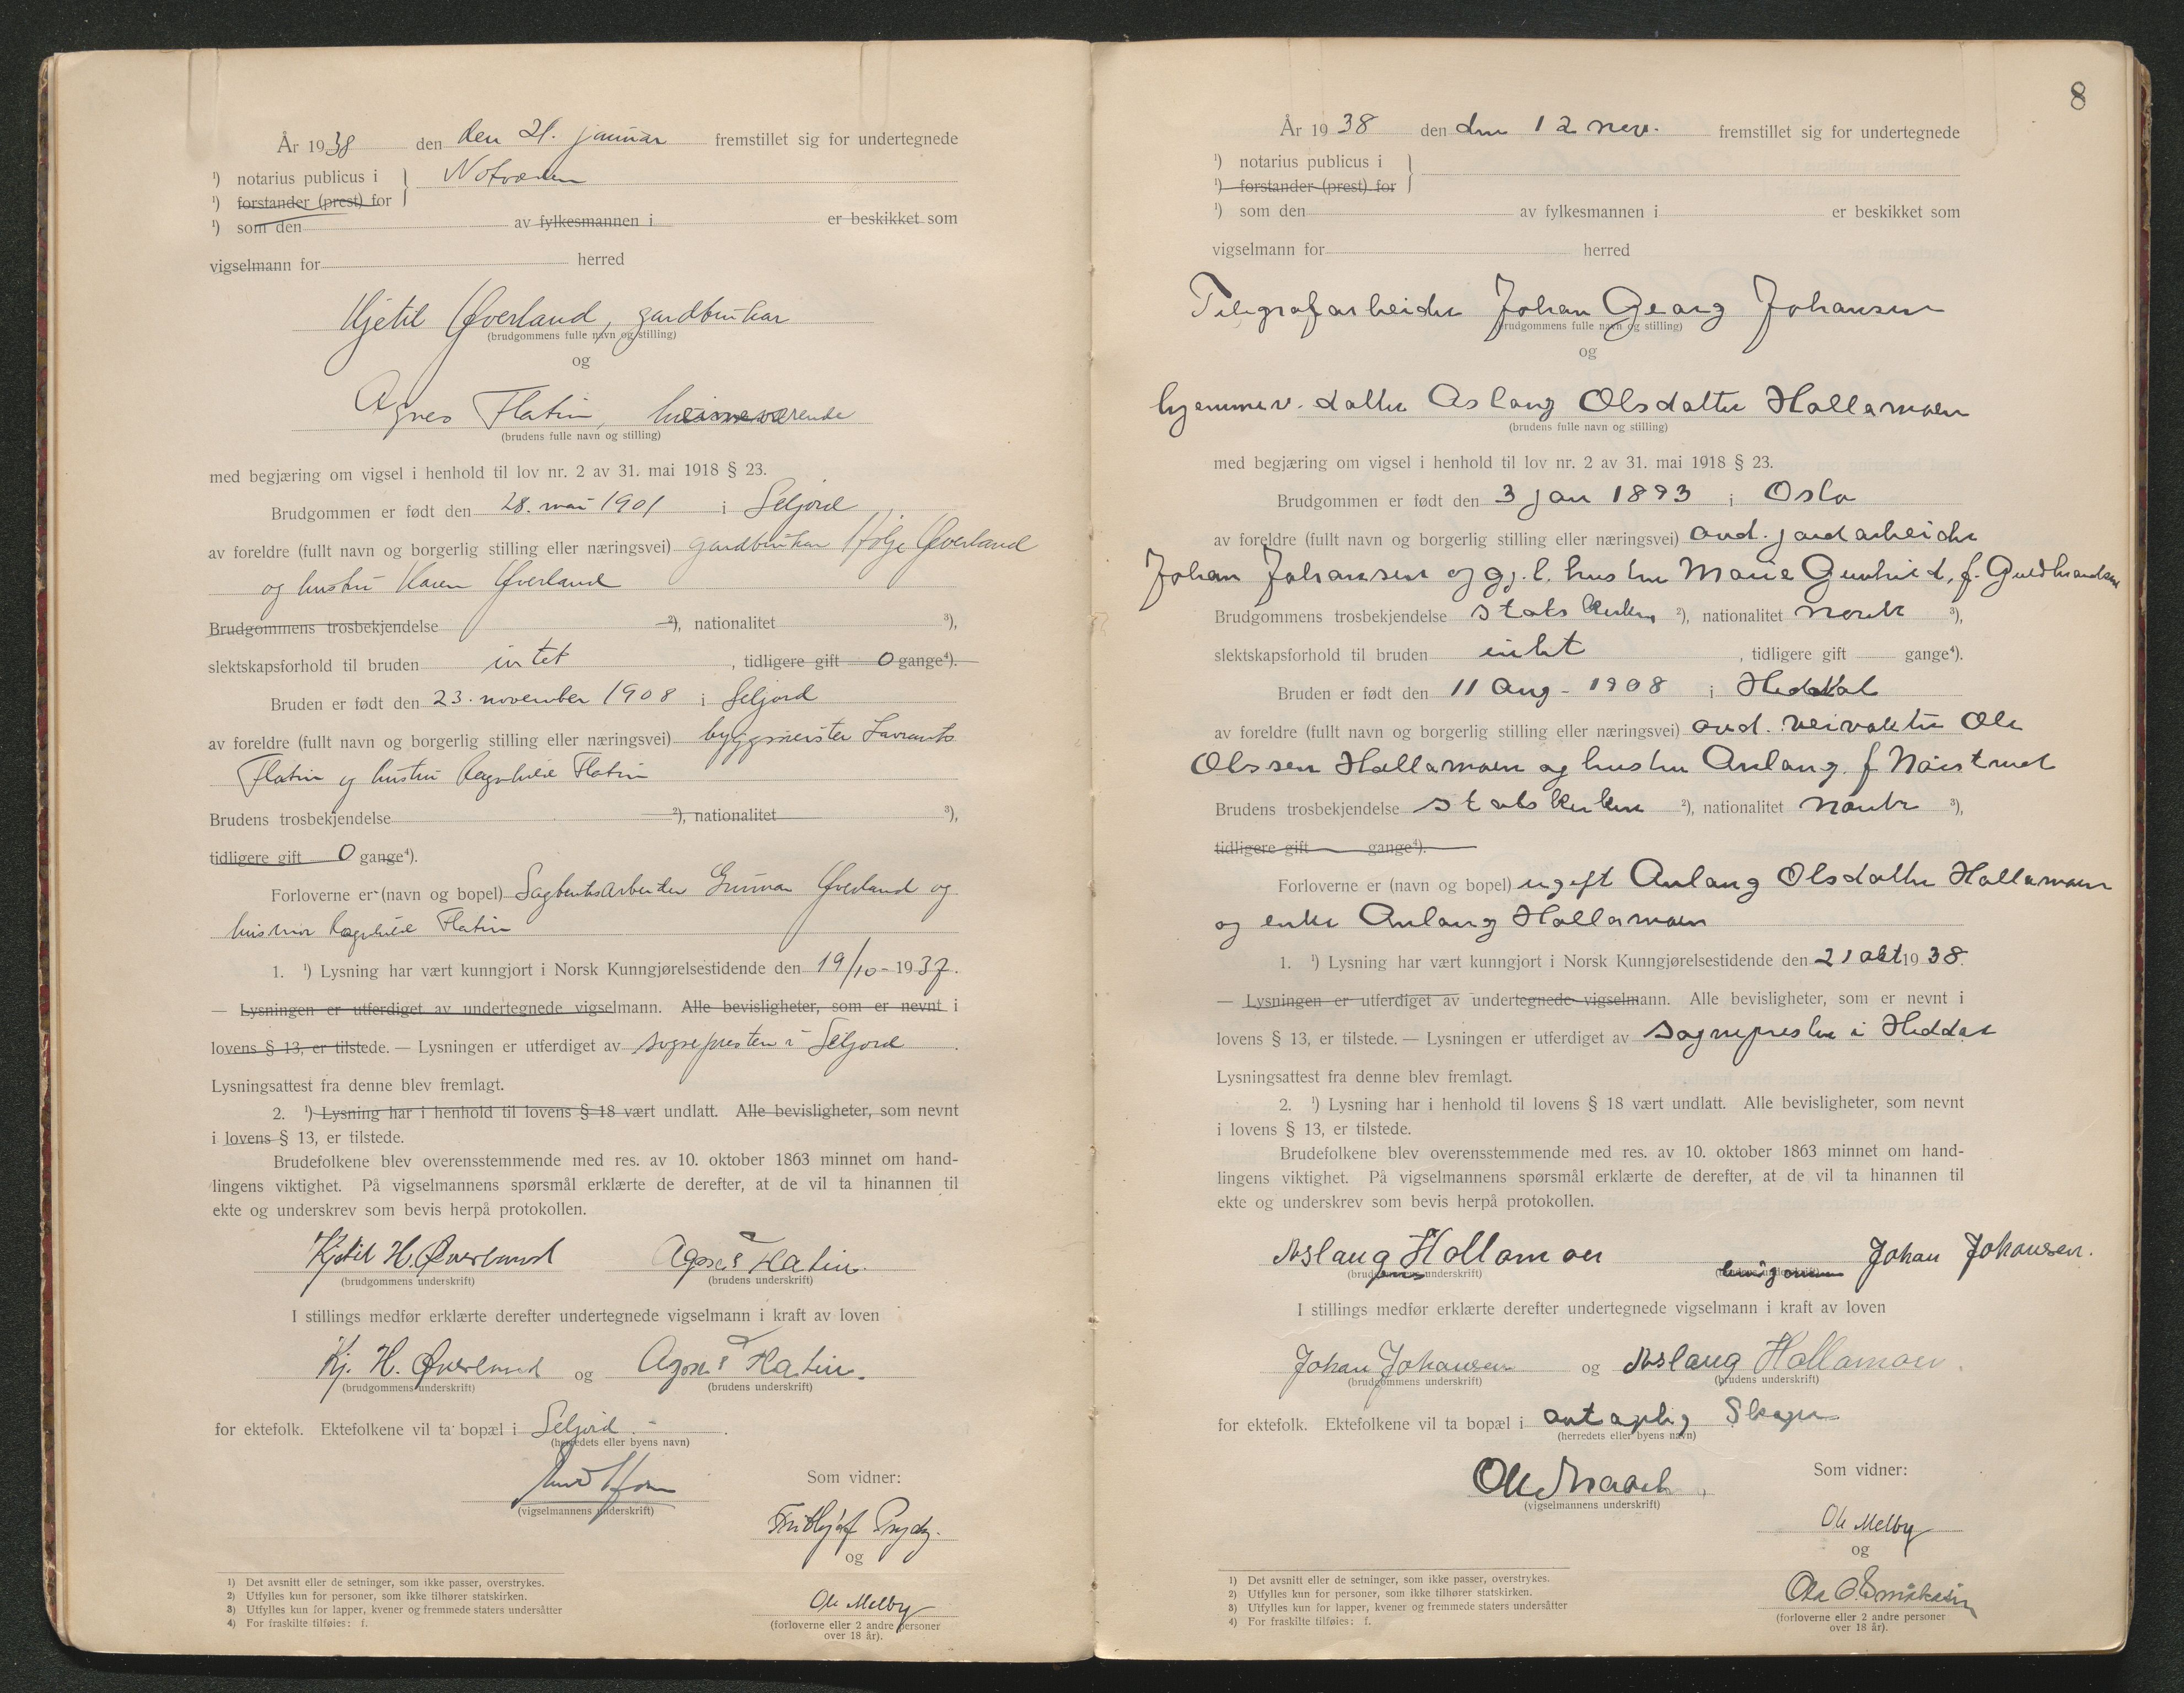 År 1938 den den 21. januar fremstillet sig for undertegnede
¹) notarius publicus i Notodden
¹) forstander (prest) for
¹) som den av fylkesmannen i er beskikket som
vigselmann for herred
Kjetil Øverland, gardbrukar
(brudgommens fulle navn og stilling)
og
Agnes Flatin, heimeværende
(brudens fulle navn og stilling)
med begjæring om vigsel i henhold til lov nr. 2 av 31. mai 1918 § 23.
Brudgommen er født den 28. mai 1901 i Seljord
av foreldre (fullt navn og borgerlig stilling eller næringsvei) gardbrukar Hølje Øverland
og hustru Karen Øverland
Brudgommens trosbekjendelse ²), nationalitet ³),
slektskapsforhold til bruden intet, tidligere gift 0 gange⁴).
Bruden er født den 23. november 1908 i Seljord
av foreldre (fullt navn og borgerlig stilling eller næringsvei) byggmeister Lavrants
Flatin og hustru Ragnhild Flatin
Brudens trosbekjendelse ²), nationalitet ³),
tidligere gift 0 gange⁴).
Forloverne er (navn og bopel) Sagbruksarbeider Gunnar Øverland og
husmor Ragnhild Flatin
1. ¹) Lysning har vært kunngjort i Norsk Kunngjørelsestidende den 19/10-1937.
— Lysningen er utferdiget av undertegnede vigselmann. Alle bevisligheter, som er nevnt i
lovens § 13, er tilstede. — Lysningen er utferdiget av sognepresten i Seljord.
Lysningsattest fra denne blev fremlagt.
2. ¹) Lysning har i henhold til lovens § 18 vært undlatt. Alle bevisligheter, som nevnt
i lovens § 13, er tilstede.
Brudefolkene blev overensstemmende med res. av 10. oktober 1863 minnet om hand-
lingens viktighet. På vigselmannens spørsmål erklærte de derefter, at de vil ta hinannen til
ekte og underskrev som bevis herpå protokollen.
Kjetil H. Øverland Agnes Flatin.
(brudgommens underskrift) (brudens underskrift)
I stillings medfør erklærte derefter undertegnede vigselmann i kraft av loven
Kj. H. Øverland og Agnes Flatin.
(brudgommens underskrift) (brudens underskrift)
for ektefolk. Ektefolkene vil ta bopæl i Seljord.
(herredets eller byens navn)
(vigselmannens underskrift)
Som vidner:
Fridthjof
og
Ole Melby
(forloverne eller 2 andre personer
over 18 år).
1) Det avsnitt eller de setninger, som ikke passer, overstrykes.
2) Utfylles kun for personer, som ikke tilhører statskirken.
3) Utfylles kun for lapper, kvener og fremmede staters undersåtter
4) For fraskilte tilføies: f.
8
År 1938 den den 12 nov. fremstillet sig for undertegnede
¹) notarius publicus i
¹) forstander (prest) for
¹) som den av fylkesmannen i er beskikket som
vigselmann for herred
Telegrafarbeider Johan Georg Johansen
(brudgommens fulle navn og stilling)
og
hjemmev. datter Aslaug Olsdatter Hallamoen
(brudens fulle navn og stilling)
med begjæring om vigsel i henhold til lov nr. 2 av 31. mai 1918 § 23.
Brudgommen er født den 3 jan 1893 i Oslo
av foreldre (fullt navn og borgerlig stilling eller næringsvei) avd. jordarbeider
Johan Johansen og gj. l. hustru Marie Gunhild, f. Guldbrandsen
Brudgommens trosbekjendelse statskirken ²), nationalitet norsk ³),
slektskapsforhold til bruden intet, tidligere gift gange⁴).
Bruden er født den 11 Aug - 1908 i Heddal
av foreldre (fullt navn og borgerlig stilling eller næringsvei) avd. veivokter Ole
Olssen Hallamoen og hustru Anlaug f.
Brudens trosbekjendelse statskirken ²), nationalitet norsk ³),
tidligere gift gange⁴).
Forloverne er (navn og bopel) ugift Anlaug Olsdatter Hallamoen
og enke Anlaug Hallamoen
1. ¹) Lysning har vært kunngjort i Norsk Kunngjørelsestidende den 21 okt 1938.
— Lysningen er utferdiget av undertegnede vigselmann. Alle bevisligheter, som er nevnt i
lovens § 13, er tilstede. — Lysningen er utferdiget av sognepresten i Heddal
Lysningsattest fra denne blev fremlagt.
2. ¹) Lysning har i henhold til lovens § 18 vært undlatt. Alle bevisligheter, som nevnt
i lovens § 13, er tilstede.
Brudefolkene blev overensstemmende med res. av 10. oktober 1863 minnet om hand-
lingens viktighet. På vigselmannens spørsmål erklærte de derefter, at de vil ta hinannen til
ekte og underskrev som bevis herpå protokollen.
Aslaug Hollamoen Johan Johansen.
(brudens underskrift) brudgommens
I stillings medfør erklærte derefter undertegnede vigselmann i kraft av loven
Johan Johansen og Aslaug Hollamoen.
(brudgommens underskrift) (brudens underskrift)
for ektefolk. Ektefolkene vil ta bopæl i antagelig
(herredets eller byens navn)
Ole
(vigselmannens underskrift)
Som vidner:
Ole Melby
og
Ola O.
(forloverne eller 2 andre personer
over 18 år).
1) Det avsnitt eller de setninger, som ikke passer, overstrykes.
2) Utfylles kun for personer, som ikke tilhører statskirken.
3) Utfylles kun for lapper, kvener og fremmede staters undersåtter
4) For fraskilte tilføies: f.